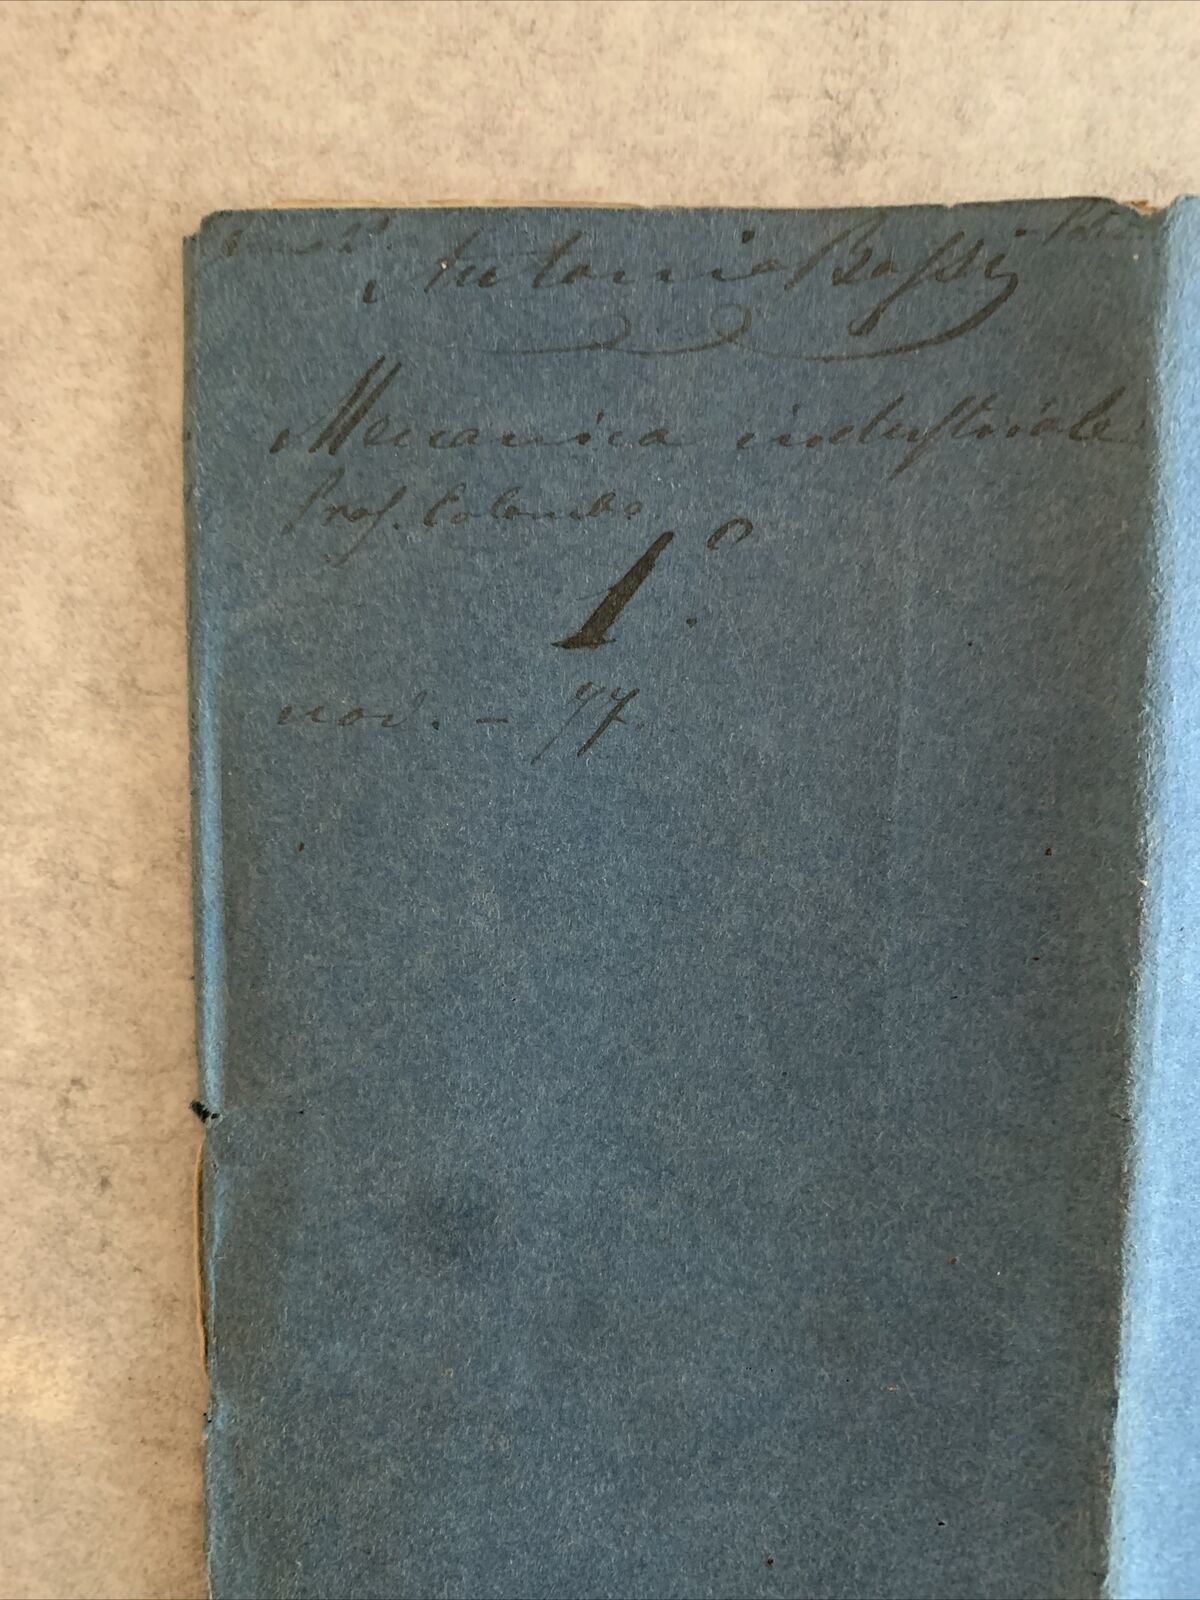 Antonio Bassi
Meccanica industriale
Prof. Colombo
1.º
nov. - 77.